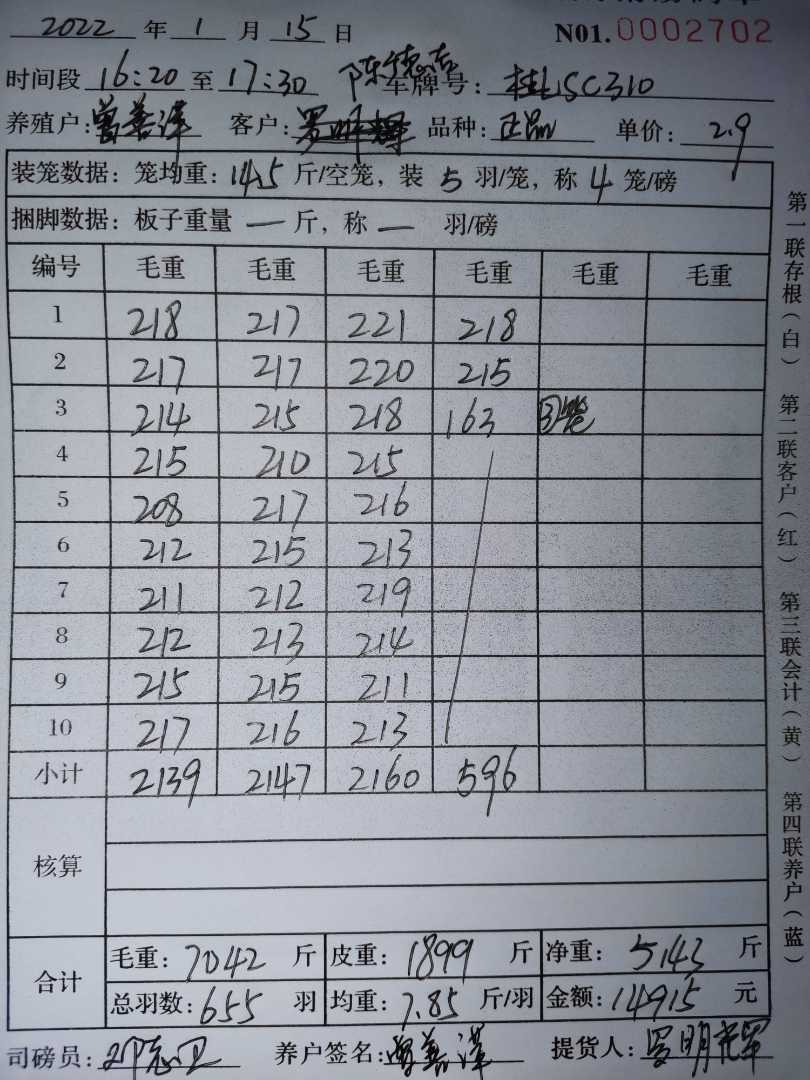 2022 年 1 月 15 日 N01. 0002702
时间段 16:20 至 17:30 陈德志 车牌号: 桂L5C310
养殖户: 曾善泽 客户: 罗明辉 品种: 正品 单价: 2.9
装笼数据: 笼均重: 14.5 斤/空笼, 装 5 羽/笼, 称 4 笼/磅
捆脚数据: 板子重量 一 斤, 称 一 羽/磅
编号 毛重 毛重 毛重 毛重 毛重 毛重
1 218 217 221 218
2 217 217 220 215
3 214 215 218 163 3笼
4 215 210 215
5 208 217 216
6 212 215 213
7 211 212 219
8 212 213 214
9 215 215 211
10 217 216 213
小计 2139 2147 2160 596
核算
合计 毛重: 7042 斤 皮重: 1899 斤 净重: 5143 斤
总羽数: 655 羽 均重: 7.85 斤/羽 金额: 14915 元
司磅员: 养户签名: 曾善泽 提货人: 罗明辉
第一联存根(白) 第二联客户(红) 第三联会计(黄) 第四联养户(蓝)